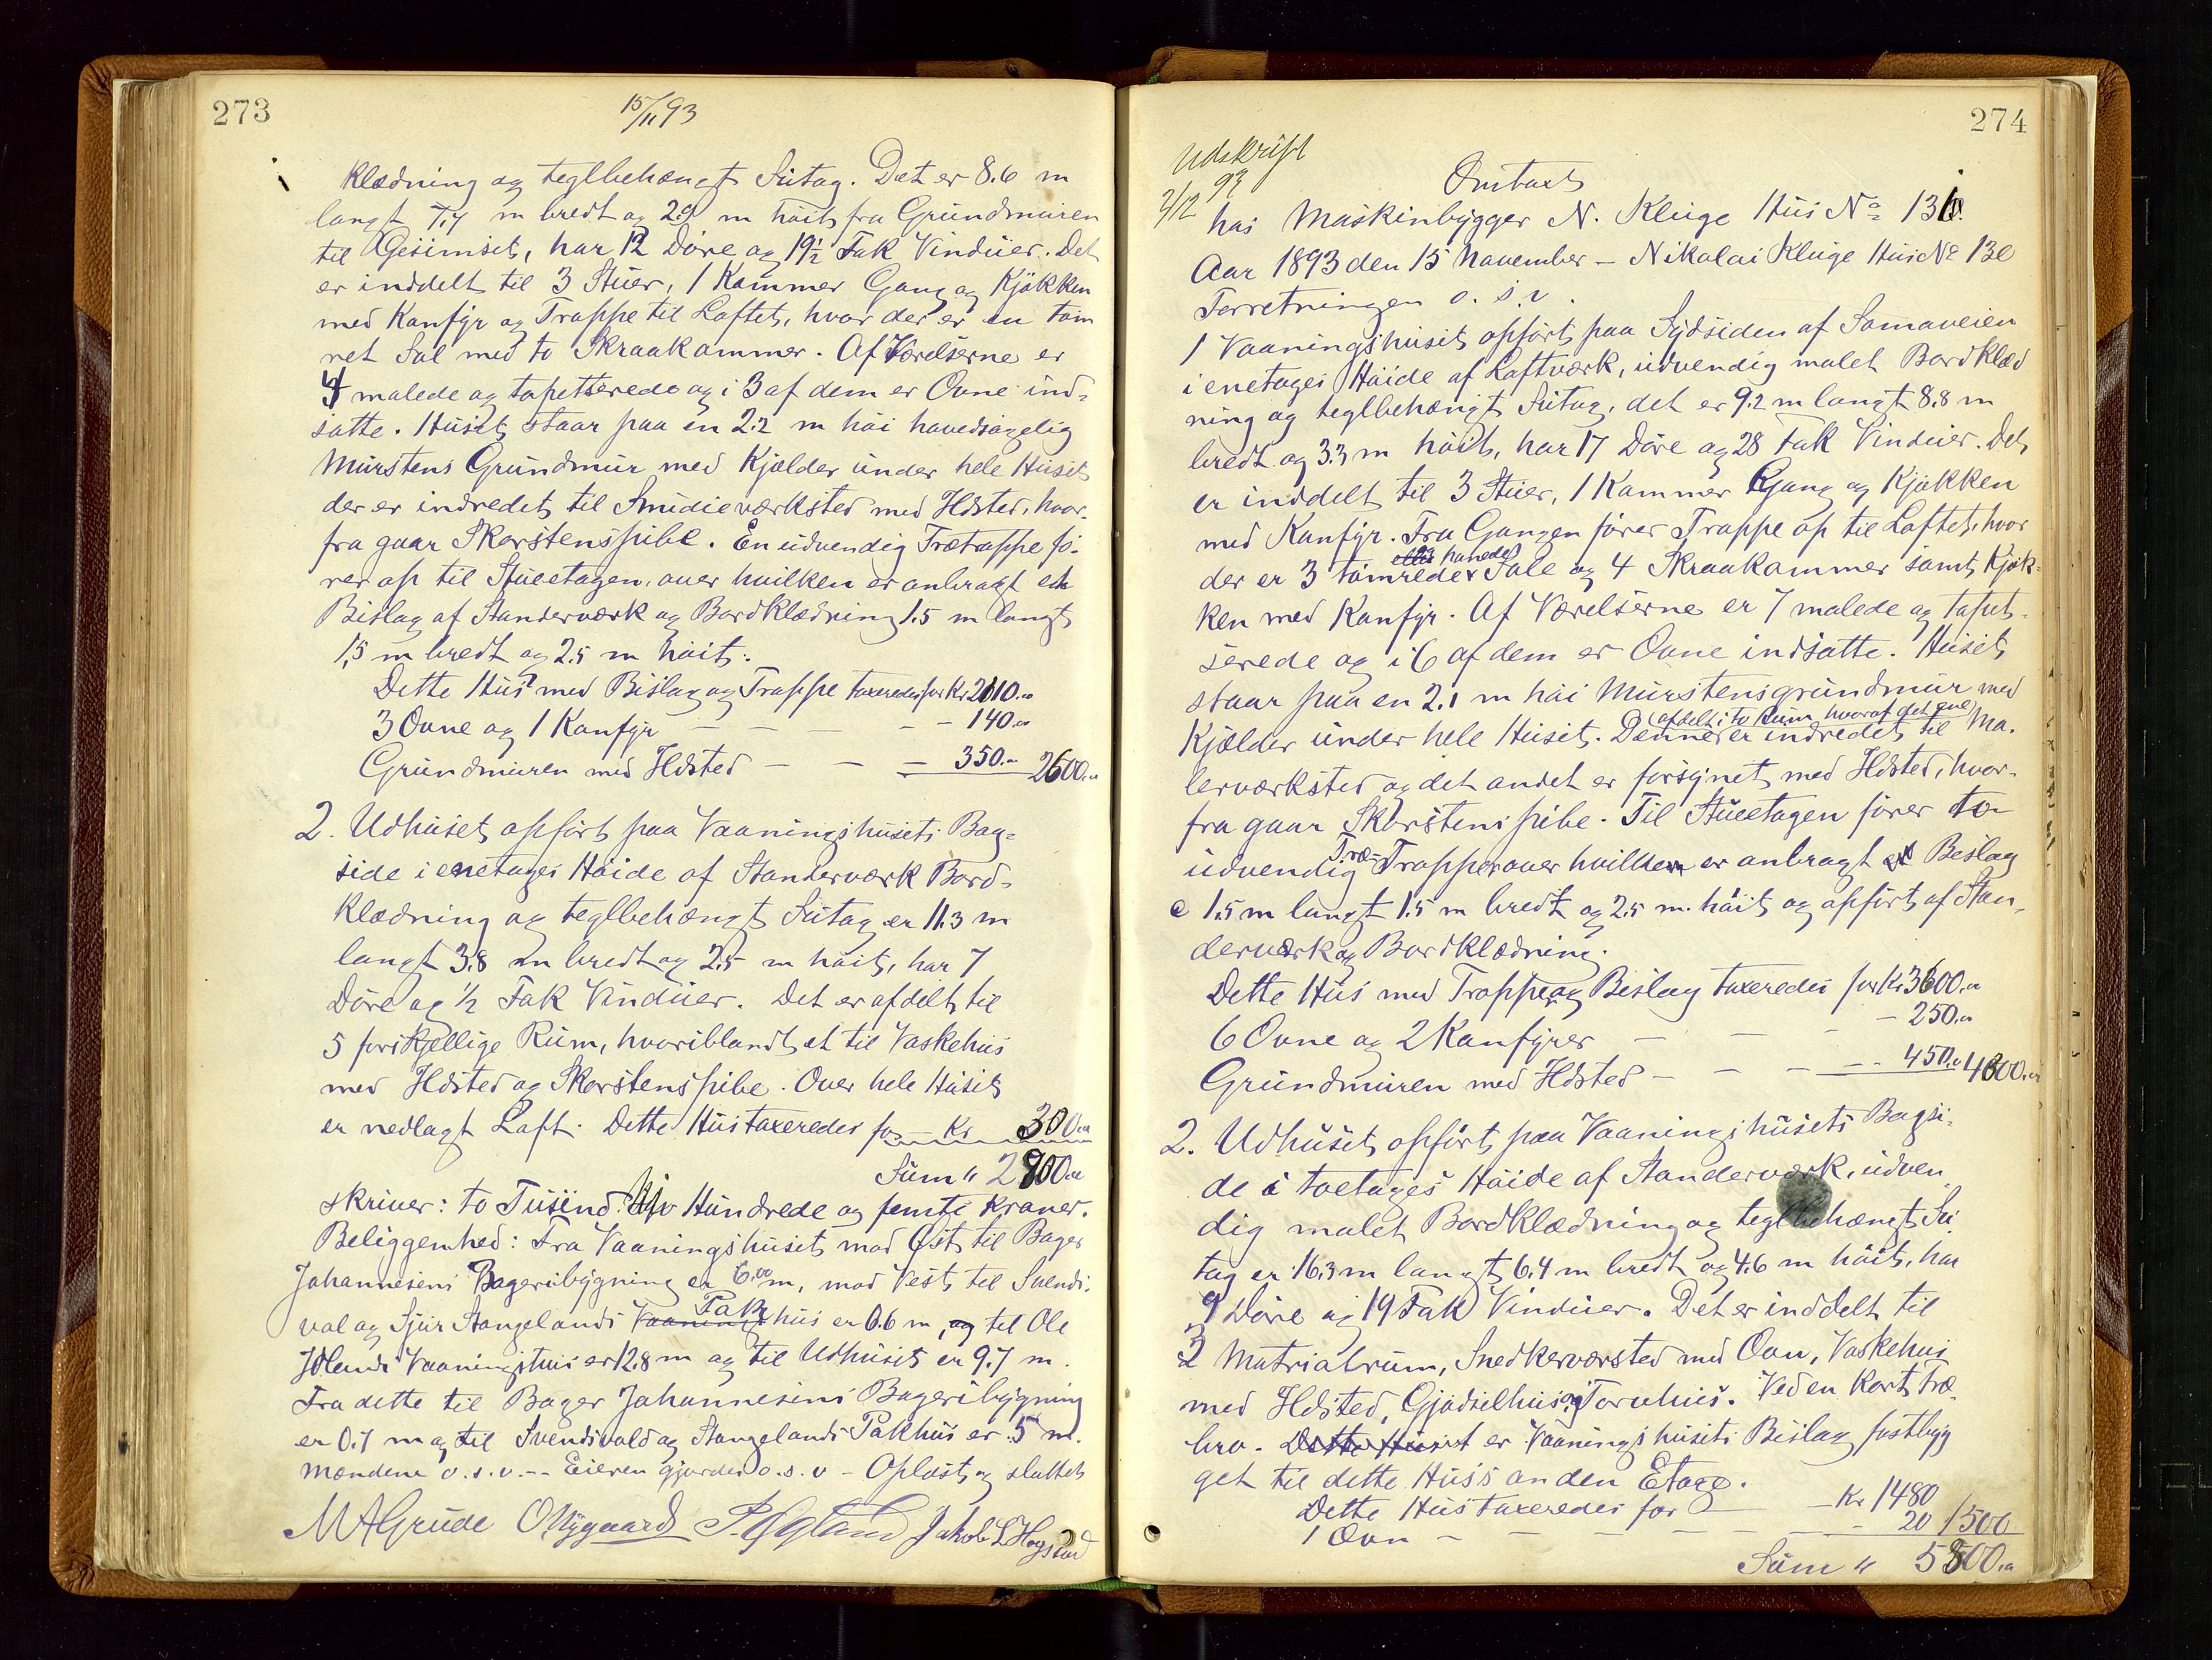 273
15/11 93
Klædning og teglbehængt Sutag. Det er 8.6 m
langt 7,7 m bredt og 2.9 m høit fra Grundmuren
til Gesimset, har 12 Døre og 19½ Fak Vinduer. Det
er inddelt til 3 Stuer, 1 Kammer Gang og Kjøkken
med Komfyr og Trappe til Loftet, hvor der er en tøm
ret Sal med to Skraakammer. Af Værelserne er
4 malede og tapetserede og i 3 af dem er Ovne ind-
satte. Huset staar paa en 2.2 m høi hovedsagelig
Murstens Grundmur med Kjælder under hele Huset
der er indredet til Smudieværksted med Ildsted, hvor-
fra gaar Skorstenspibe. En udvendig Trætrappe fø-
rer op til Stueetagen, over hvilken er anbragt et
Bislag af Standerværk og Bordklædning 1.5 m langt
1,5 m bredt og 2.5 m høit.
Dette Hus med Bislag og Trappe taxeredes for Kr 2110.00
3 Ovne og 1 Komfyr — — — — 140.00
Grundmuren med Ildsted — — — 350.00 2600.00
2. Udhuset opført paa Vaaningshusets Bag-
side i enetages Høide af Standerværk Bord-
klædning og teglbehængt Sutag er 11.3 m
langt 3.8 m bredt og 2.5 m høit, har 7
Døre og ½ Fak Vinduer. Det er afdelt til
5 forskjellige Rum, hvoriblandt et til Vaskehus
med Ildsted og Skorstenspibe. Over hele Huset
er nedlagt Loft. Dette Hus taxeredes for — Kr 300.00
Sum " 2900.00
skriver: to Tusind Hundrede og Kroner.
Beliggenhed: Fra Vaaningshuset mod Øst til Bager
Johannesens Bageribygning er 6.00 m, mod Vest til Svends-
vol og Sjur Stangelands Vaanings Pakhus er 0.6 m, og til Ole
Idlands Vaaningshus er 12.8 m og til Udhuset er 9.7 m.
Fra dette til Bager Johannesens Bageribygning
er 0.7 m og til Svendsvold og Stangelands Pakhus er 5 m.
Mændene o.s.v. -- Eieren gjordes o.s.v - Oplæst og sluttet
M A Grude O Nygaard Jakob L Hogstad

274
Udskrift
2/12 93
Omtaxt
hos Maskinbygger N. Kluge Hus No 131
Aar 1893 den 15 November — Nikolai Kluge Hus No 13e
Forretningen o. s. v.
1 Vaaningshuset opført paa Sydsiden af Somaveien
i enetages Høide af Loftværk, udvendig malet Bordklæd
ning og teglbehængt Sutag, det er 9.2 m langt 8.8 m
bredt og 3.3 m høit, har 17 Døre og 28 Fak Vinduer. Det
er inddelt til 3 Stuer, 1 Kammer Gang og Kjøkken
med Komfyr. Fra Gangen fører Trappe op til Loftet, hvor
der er 3 tømrede Sale og 4 Skraakammer samt Kjøk-
ken med Komfyr. Af Værelserne er 7 malede og tapet-
serede og i 6 af dem er Ovne indsatte. Huset
staar paa en 2.1 m høi Murstensgrundmur med
afdelt i to Rum, hvoraf det ene
Kjælder under hele Huset. Denne er indredet til Ma-
lerværksted og det andet er forsynet med Ildsted, hvor-
fra gaar Skorstenspibe. Til Stueetagen fører to
udvendig Træ-Trapper over hvilken er anbragt et Beslag
c 1.5 m langt 1.5 m bredt og 2.5 m. høit og opført af Stan-
derværk og Bordklædning.
Dette Hus med Trapper og Bislag taxeredes for Kr 3600.00
6 Ovne og 2 Komfyrer — — — — 250.00
Grundmuren med Ildsted — — — — 450.00 4300.00
2. Udhuset opført paa Vaaningshusets Bagsi-
de i toetages Høide af Standerværk, udven
dig malet Bordklædning og teglbehængt Su
tag er 16.3 m langt 6.4 m bredt og 4.6 m høit, har
9 Døre og 19 Fak Vinduer. Det er inddelt til
2 Matrialrum, Snedkerværsted med Ovn, Vaskehus
med Ildsted, Gjødselhus og Torvhus. Ved en kort Træ-
bro. Dette Huset er Vaaningshusets Bislag fastbyg
get til dette Huss anden Etage.
Dette Hus taxeredes for — — Kr 1480
1 Ovn — — — — — — 20 1500
Sum " 5800.00